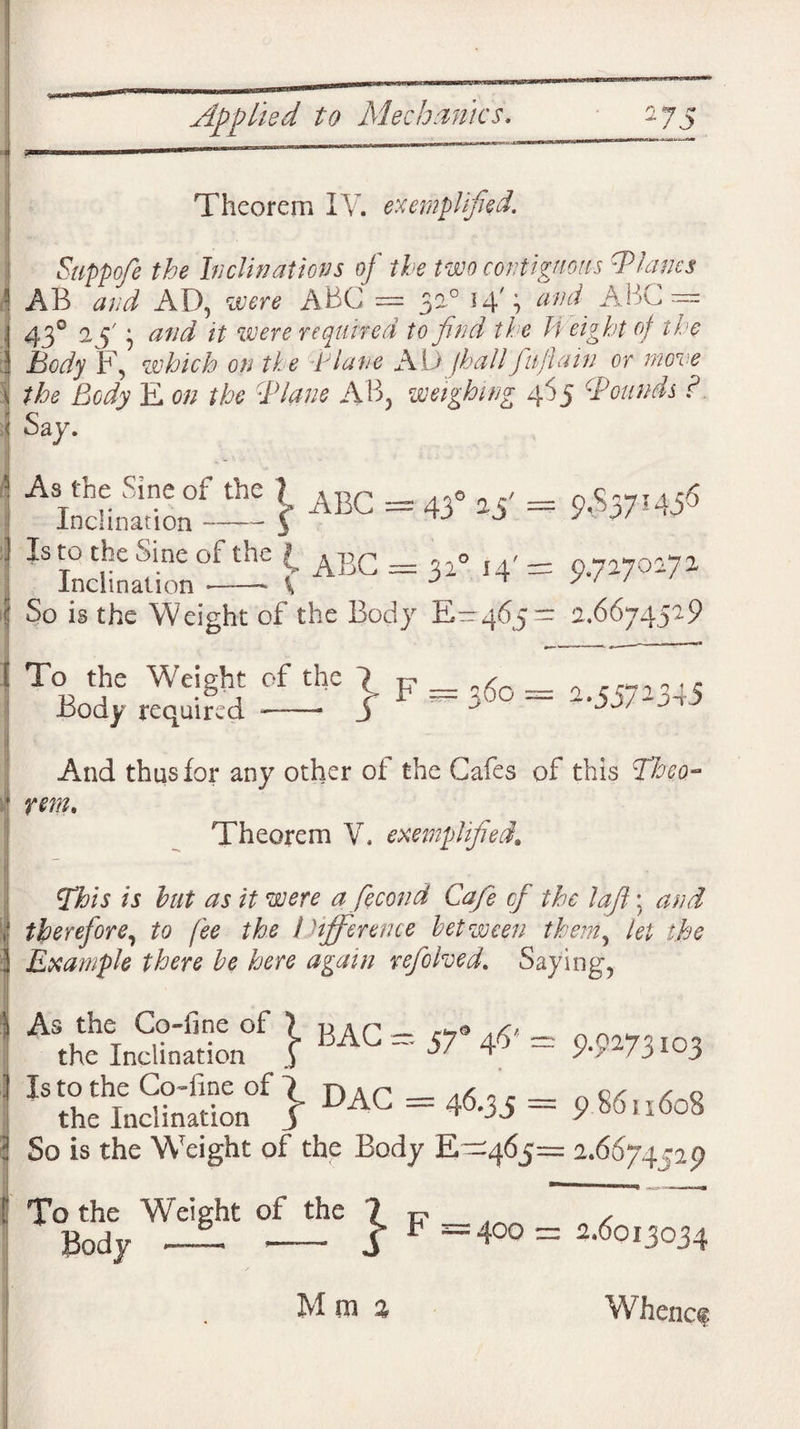 Applied to Mechanics. 275
Theorem IV. exemplified.
Suppoſe the Inclinations of the two contiguous Planes
AB and AD, were ABC = 32° 14′; and ABC =
43° 25′; and it were required to find the Weight of the
Body F, which on the Plane AD ſhall ſuſtain or move
the Body E on the Plane AB, weighing 465 Pounds?
Say.
As the Sine of the Inclination —— } ABC = 43° 25′ = 9.8371456
Is to the Sine of the Inclination —— } ABC = 32° 14′ = 9.7270272
So is the Weight of the Body E=465 = 2.6674529
To the Weight of the Body required —— } F = 360 = 2.5572345
And thus for any other of the Caſes of this Theo-
rem.
Theorem V. exemplified.
This is but as it were a ſecond Caſe of the laſt; and
therefore, to ſee the Difference between them, let the
Example there be here again reſolved. Saying,
As the Co-ſine of the Inclination } BAC = 57° 46′ = 9.9273103
Is to the Co-ſine of the Inclination } DAC = 46.35 = 9 8611608
So is the Weight of the Body E=465= 2.6674529
To the Weight of the Body —— —— } F =400 = 2.6013034
M m 2 Whence